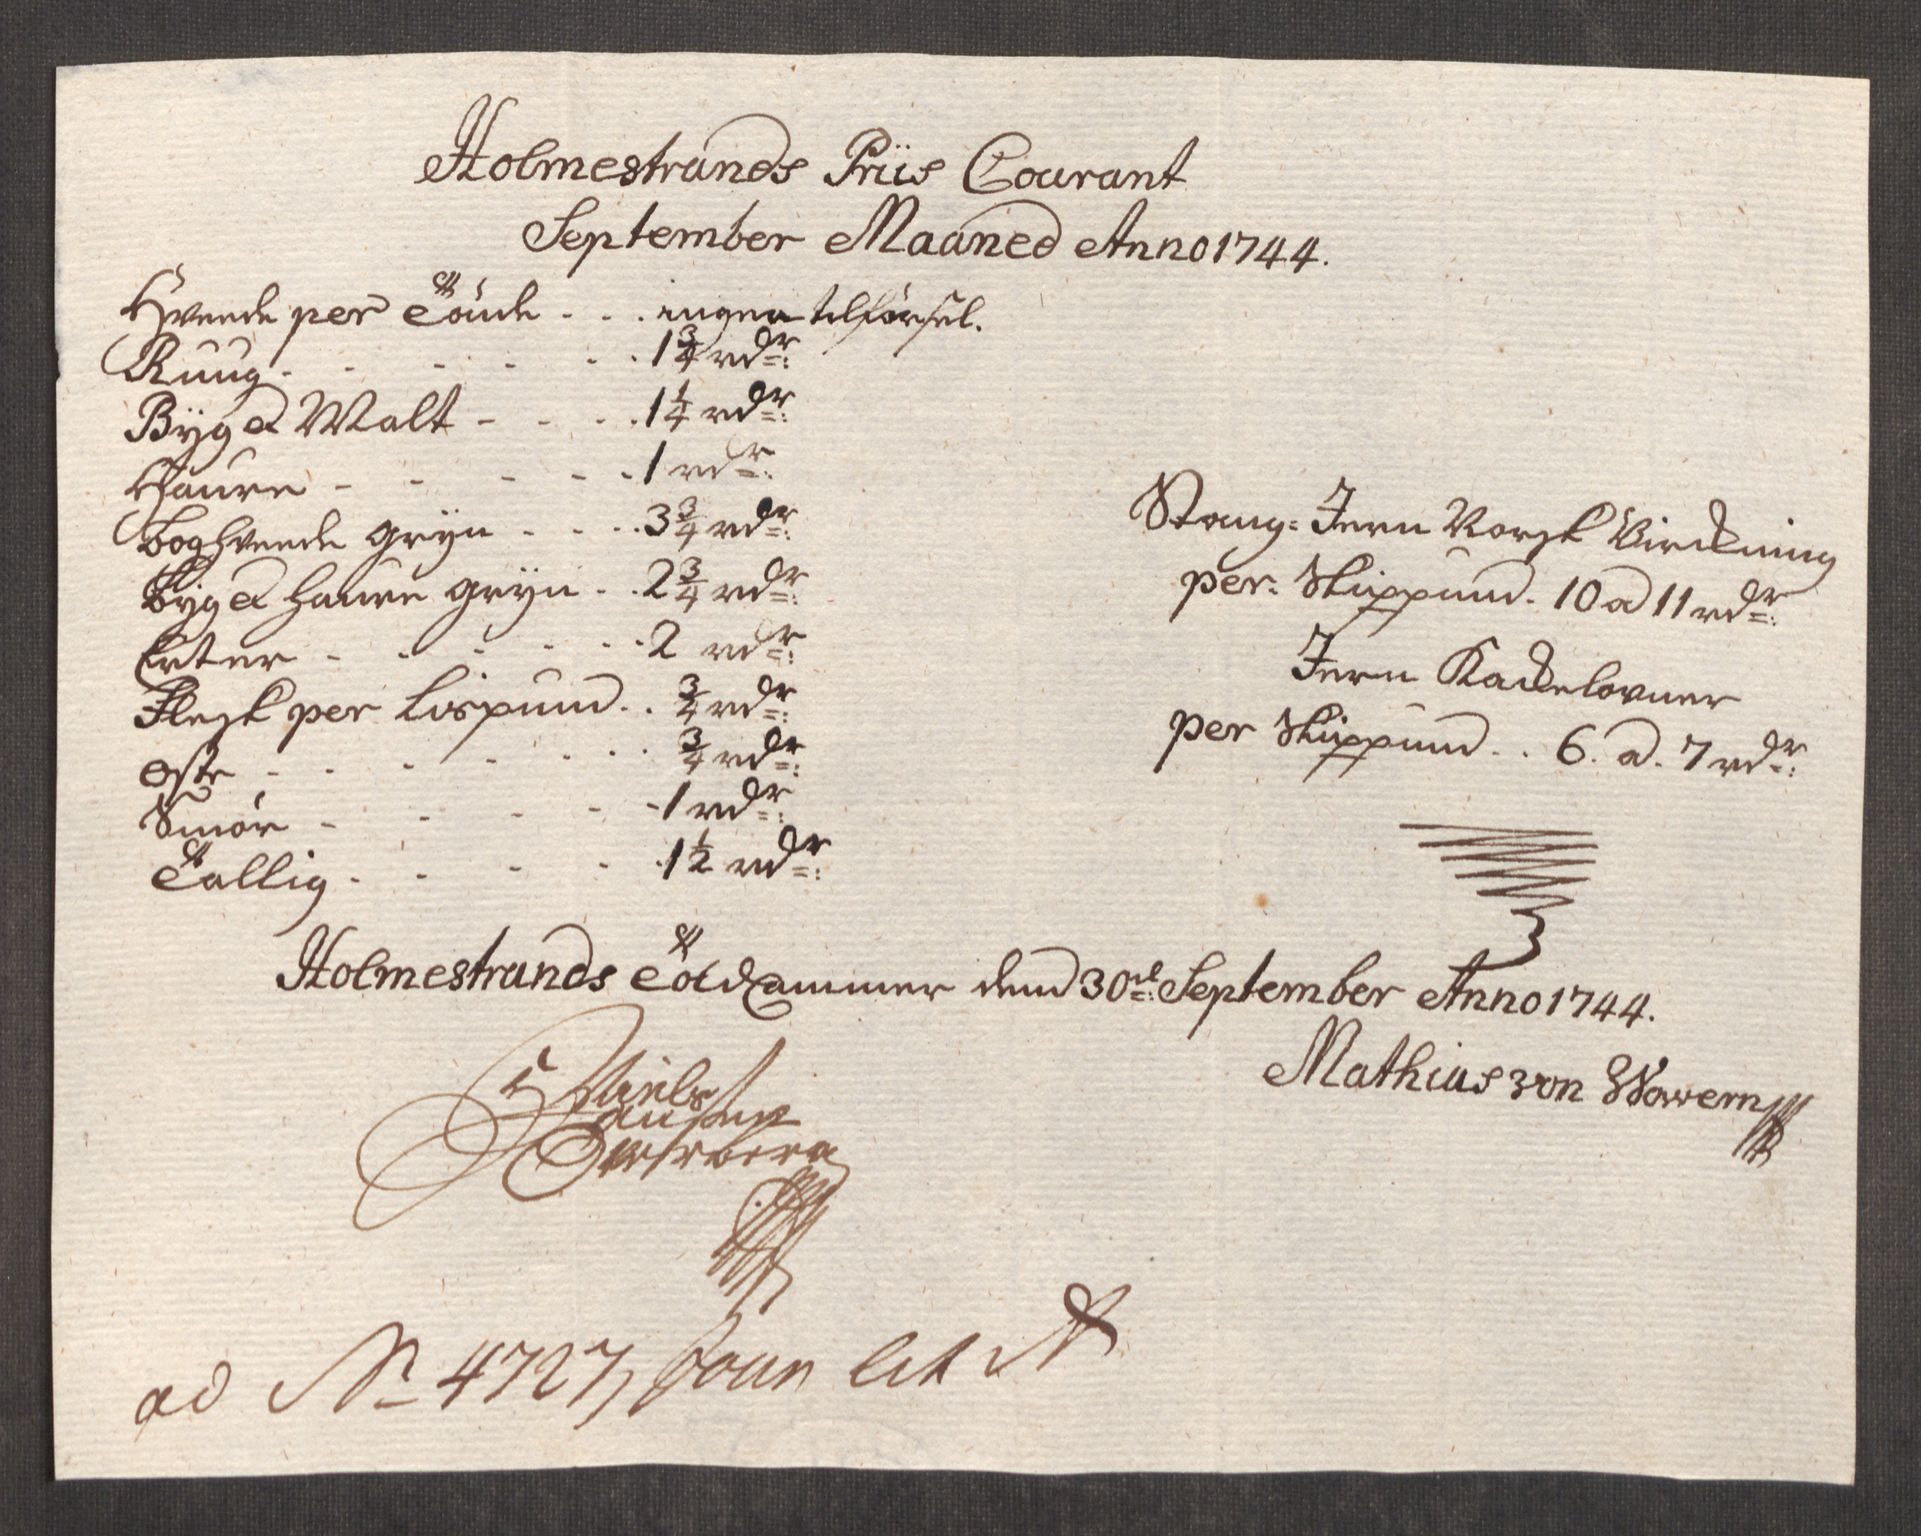 Holmestrands Priis Courant
September Maaned Anno 1744.
Hveede per Tönde . . . ingen tilförsel.
Ruug . . . . . . 1 3/4 rdr:
Byg & Malt - . . . 1 1/4 rdr:
Haure - . . . . 1 rdr:
Boghveede gryn . . . 3 3/4 rdr:
Byg & Haure gryn . . 2 3/4 rdr:
Erter - . . . . . 2 rdr:
Flesk per Lispund . . 3/4 rdr:
Oste . . . . . . 3/4 rdr:
Smör - . . . . - 1 rdr:
Tallig . . . . . 1 1/2 rdr:
Stang-Jern Norsk Virckning
per. Skippund. 10 a 11 rdr:
Jern Kackelovner
per Skippund . . 6. a. 7 rdr:
Holmestrands Toldcammer dend 30te: September Anno 1744.
Mathias von Wowern
Niels
ad No 4727, Lit A